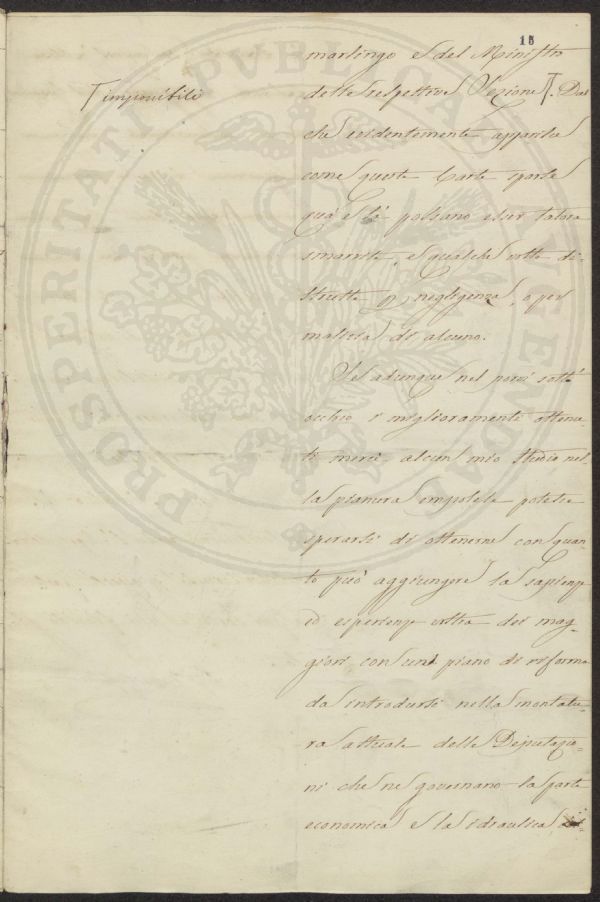 15
marlingo e del Ministro
delle respettive Sezione Γ. Dal
Γ imponibili
che evidentemente apparisce
come queste Carte sparse
quá e lá possano esser talora
smarrite, e qualche volta di-
strutte p negligenza, o per
malizia di alcuno.
Se adunque nel porvi sott'
occhio i miglioramenti ottenu-
ti mercé alcun mio studio nel-
la pianura empolese potessi
sperarsi di ottenerne con quan
to puó aggiungere la sapienz
ed esperienz vostra dei mag-
giori, con un piano di riforma
da introdursi nella montatu-
ra attuale delle Deputazio-
ni che ne governano la parte
economica e la idraulica
PROSPERITATI PVBLICAE AVGENDAE